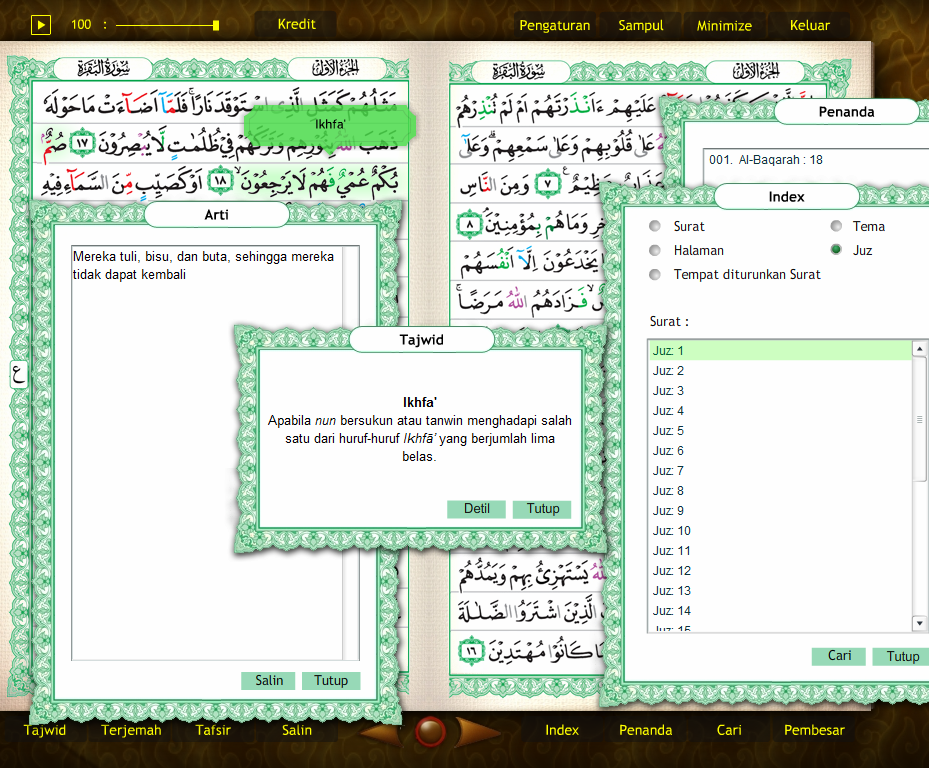 100 :
Kredit
Pengaturan
Sampul
Minimize
Keluar
سورة البقرة
الجزء الأول
سورة البقرة
الجزء الأول
مَثَلُهُمْ كَمَثَلِ الَّذِى اسْتَوْقَدَ نَارًا ۚ فَلَمَّآ اَضَآءَتْ مَا حَوْلَهٗ
Ikhfa'
ذَهَبَ اللّٰهُ بِنُوْرِهِمْ وَتَرَكَهُمْ فِيْ ظُلُمٰتٍ لَّا يُبْصِرُوْنَ ١٧ صُمٌّ
بُكْمٌ عُمْيٌ فَهُمْ لَا يَرْجِعُوْنَ ۙ ١٨ اَوْ كَصَيِّبٍ مِّنَ السَّمَآءِ فِيْهِ
ع
عَلَيْهِمْ ءَاَنْذَرْتَهُمْ اَمْ لَمْ تُنْذِرْهُمْ
عَلٰى قُلُوْبِهِمْ وَعَلٰى سَمْعِهِمْ ۗ وَعَلٰٓى
عَظِيْمٌ ࣖ ٧ وَمِنَ النَّاسِ
وَمَا هُمْ بِمُؤْمِنِيْنَ ۘ ٨
يَخْدَعُوْنَ اِلَّآ اَنْفُسَهُمْ
فَزَادَهُمُ اللّٰهُ مَرَضًا ۚ
يَسْتَهْزِئُ بِهِمْ وَيَمُدُّهُمْ
الَّذِيْنَ اشْتَرَوُا الضَّلٰلَةَ
كَانُوْا مُهْتَدِيْنَ ١٦
Arti
Mereka tuli, bisu, dan buta, sehingga mereka
tidak dapat kembali
Salin
Tutup
Tajwid
Ikhfa'
Apabila nun bersukun atau tanwin menghadapi salah
satu dari huruf-huruf Ikhfā' yang berjumlah lima
belas.
Detil
Tutup
Penanda
001. Al-Baqarah : 18
Index
Surat
Tema
Halaman
Juz
Tempat diturunkan Surat
Surat :
Juz: 1
Juz: 2
Juz: 3
Juz: 4
Juz: 5
Juz: 6
Juz: 7
Juz: 8
Juz: 9
Juz: 10
Juz: 11
Juz: 12
Juz: 13
Juz: 14
Juz: 15
Cari
Tutup
Tajwid
Terjemah
Tafsir
Salin
Index
Penanda
Cari
Pembesar